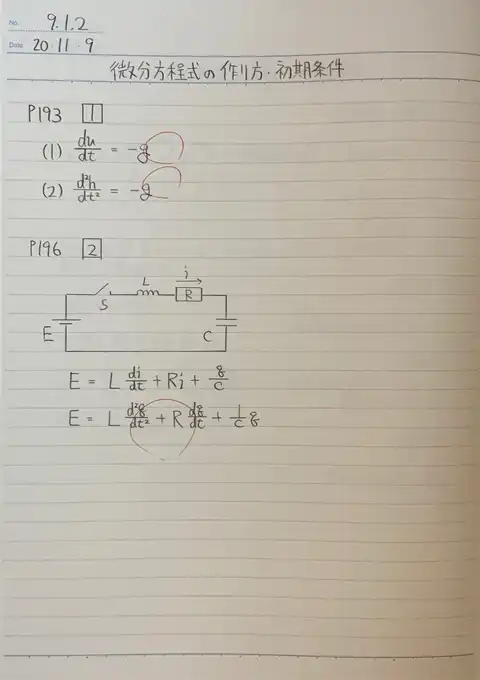 No. 9.1.2
Date 20・11・9
微分方程式の作り方・初期条件
P193 1
(1) du/dt = -g
(2) d²h/dt² = -g
P196 2
L i
R
S
E C
E = L di/dt + Ri + q/c
E = L d²q/dt² + R dq/dt + 1/c q